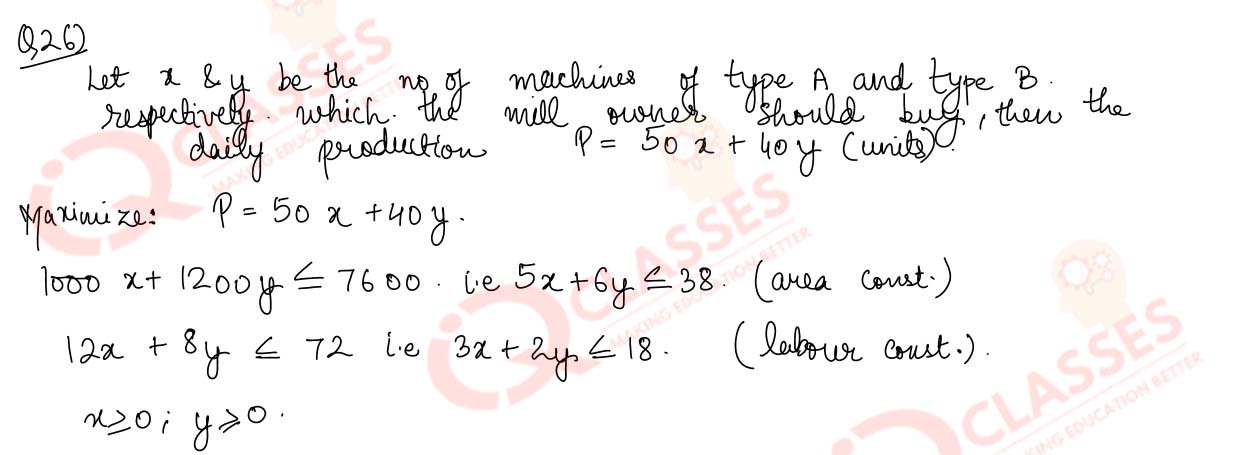 Q26)
Let x & y be the no of machines of type A and type B.
respectively. which. the mill owner should buy, then the
daily production P = 50 x + 40 y (units).
Maximize: P = 50 x + 40 y.
1000 x + 1200y ≤ 7600. i.e 5x + 6y ≤ 38. (area const.)
12x + 8y ≤ 72 i.e 3x + 2y ≤ 18. (labour const.).
x ≥ 0; y ≥ 0.
CLASSES
MAKING EDUCATION BETTER
CLASSES
MAKING EDUCATION BETTER
CLASSES
MAKING EDUCATION BETTER